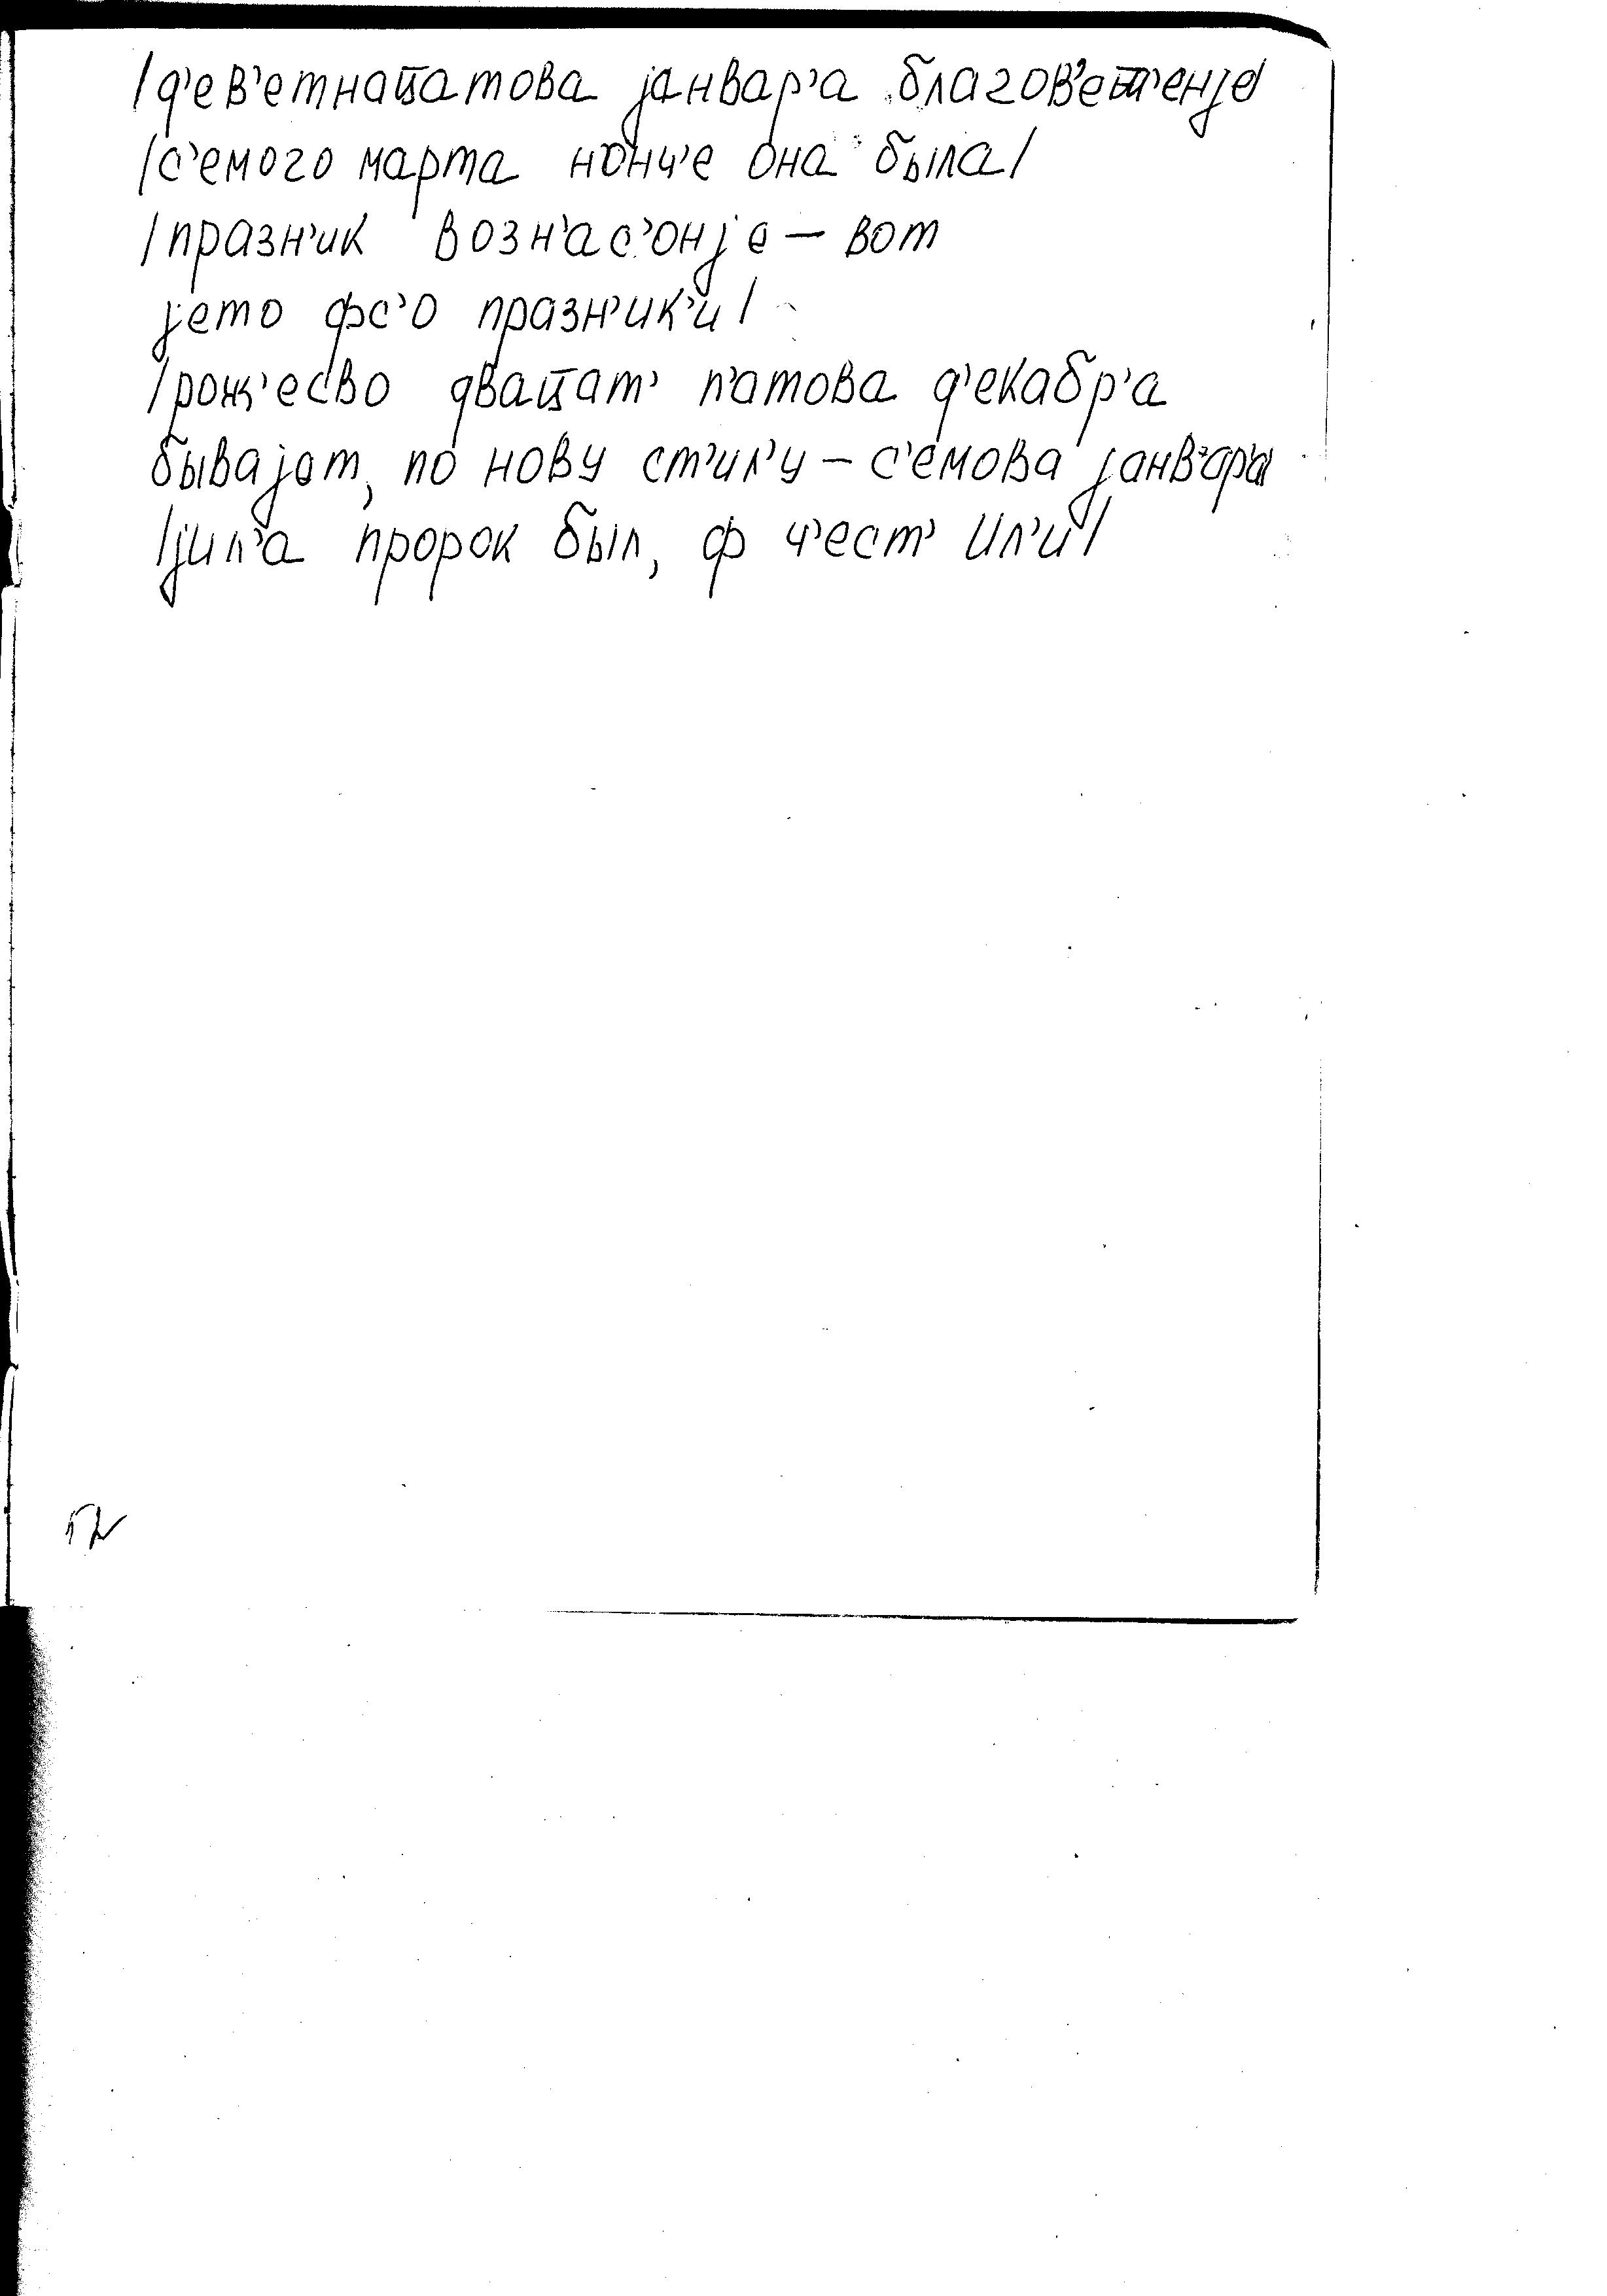 /д'ев'етнац̄атова јанвар'а благов'ешш'енје/
/с'емого марта нонч'е она была/
/празн'ик возн'ас'онје – вот
јето фс'о празн'ик'и/
/рож'ево двац̄ат' п'атова д'екабр'а
бывајет, по нову ст'ил'у – с'емова јанв'ар'а
/јил'а пророк был, ф ч'ест' Ил'и/